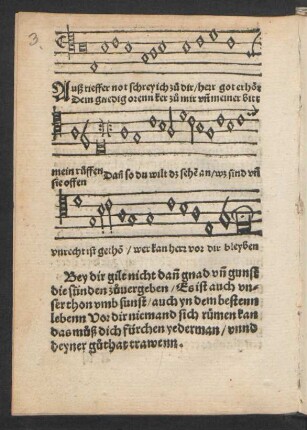 3.
Auß tieffer not schrey ich zů dir / herr got erhör
Dein gnedig oren ker zů mir vñ meiner bitt
mein růffen Dañ so du wilt dz sehē an / wz sind vñ
sie offen
vnrecht ist gethō / wer kan herr vor dir bleyben
Bey dir gilt nicht dañ gnad vñ gunst
die sünden zůuergeben / Es ist auch vn-
ser thon vmb sunst / auch yn dem bestenn
lebenn Vor dir niemand sich rümen kan
das můß dich fürchen yederman / vnnd
deyner gůthat trawenn.